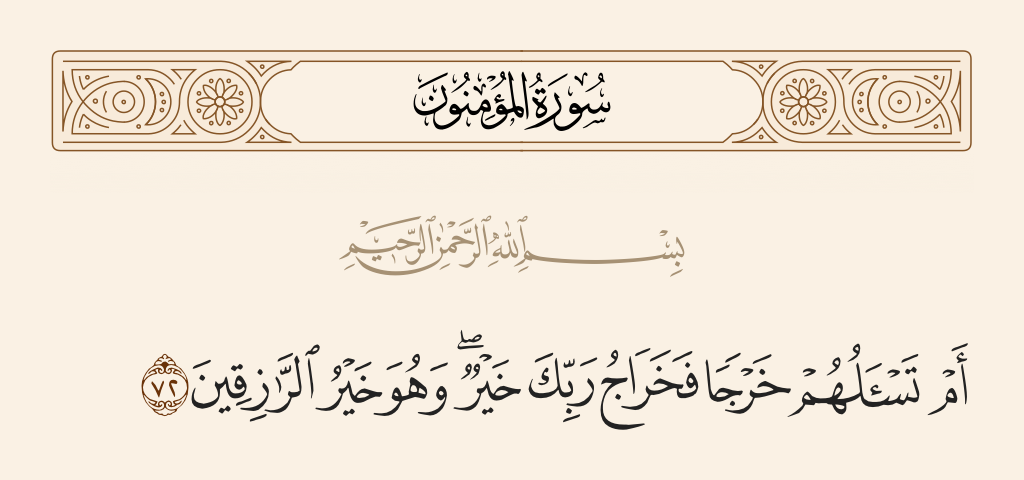 سُورَةُ المُؤْمِنُونَ
بِسْمِ ٱللَّهِ ٱلرَّحْمَٰنِ ٱلرَّحِيمِ
أَمْ تَسْـَٔلُهُمْ خَرْجًا فَخَرَاجُ رَبِّكَ خَيْرٌ ۖ وَهُوَ خَيْرُ ٱلرَّٰزِقِينَ ٧٢